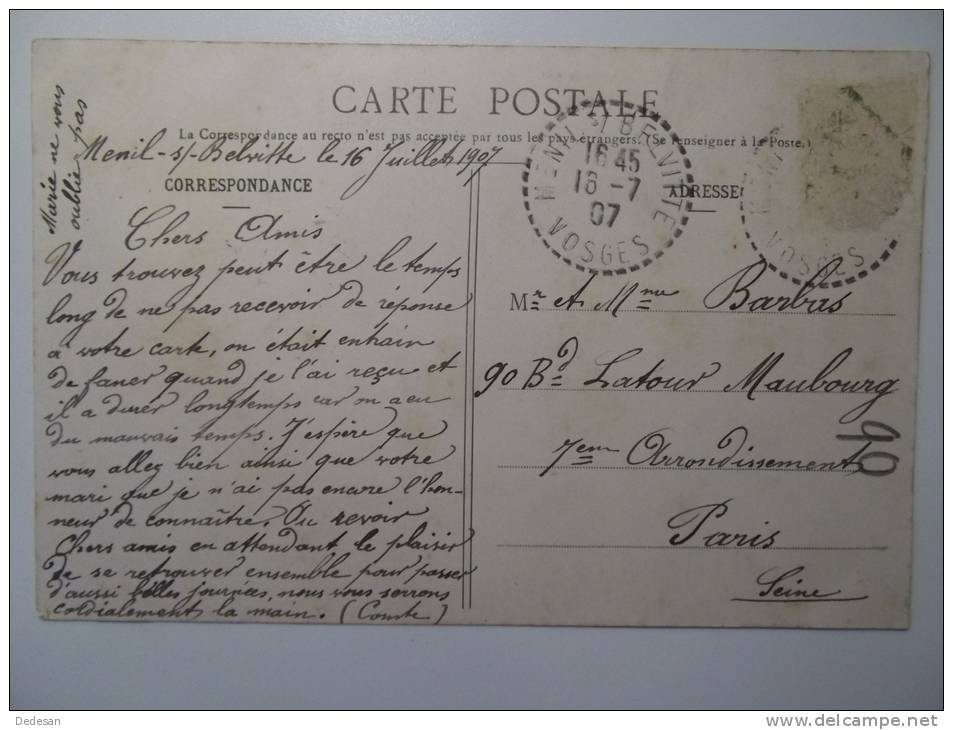 CARTE POSTALE
La Correspondance au recto n'est pas acceptée par tous les pays étrangers. (Se renseigner à la Poste.)
Menil-s/-Belvitte le 16 Juillet 1907
CORRESPONDANCE
ADRESSE
Marie ne vous
oublie pas
Chers Amis
Vous trouvez peut être le temps
long de ne pas recevoir de réponse
à votre carte, on était entrain
de faner quand je l'ai reçu et
il a durer longtemps car on a eu
du mauvais temps. J'espère que
vous allez bien ainsi que votre
mari que je n'ai pas encore l'hon-
neur de connaître. Au revoir
Chers amis en attendant le plaisir
de se retrouver ensemble pour passer
d'aussi belles journées, nous vous serrons
cordialement la main. (Comte)
MENIL S/ BELVITTE
16 45
16 -7
07
VOSGES
VOSGES
Mr et Mme Barbas
90 Bd Latour Maubourg
7em Arrondissement
Paris
Seine
90
Dedesan
www.delcampe.net